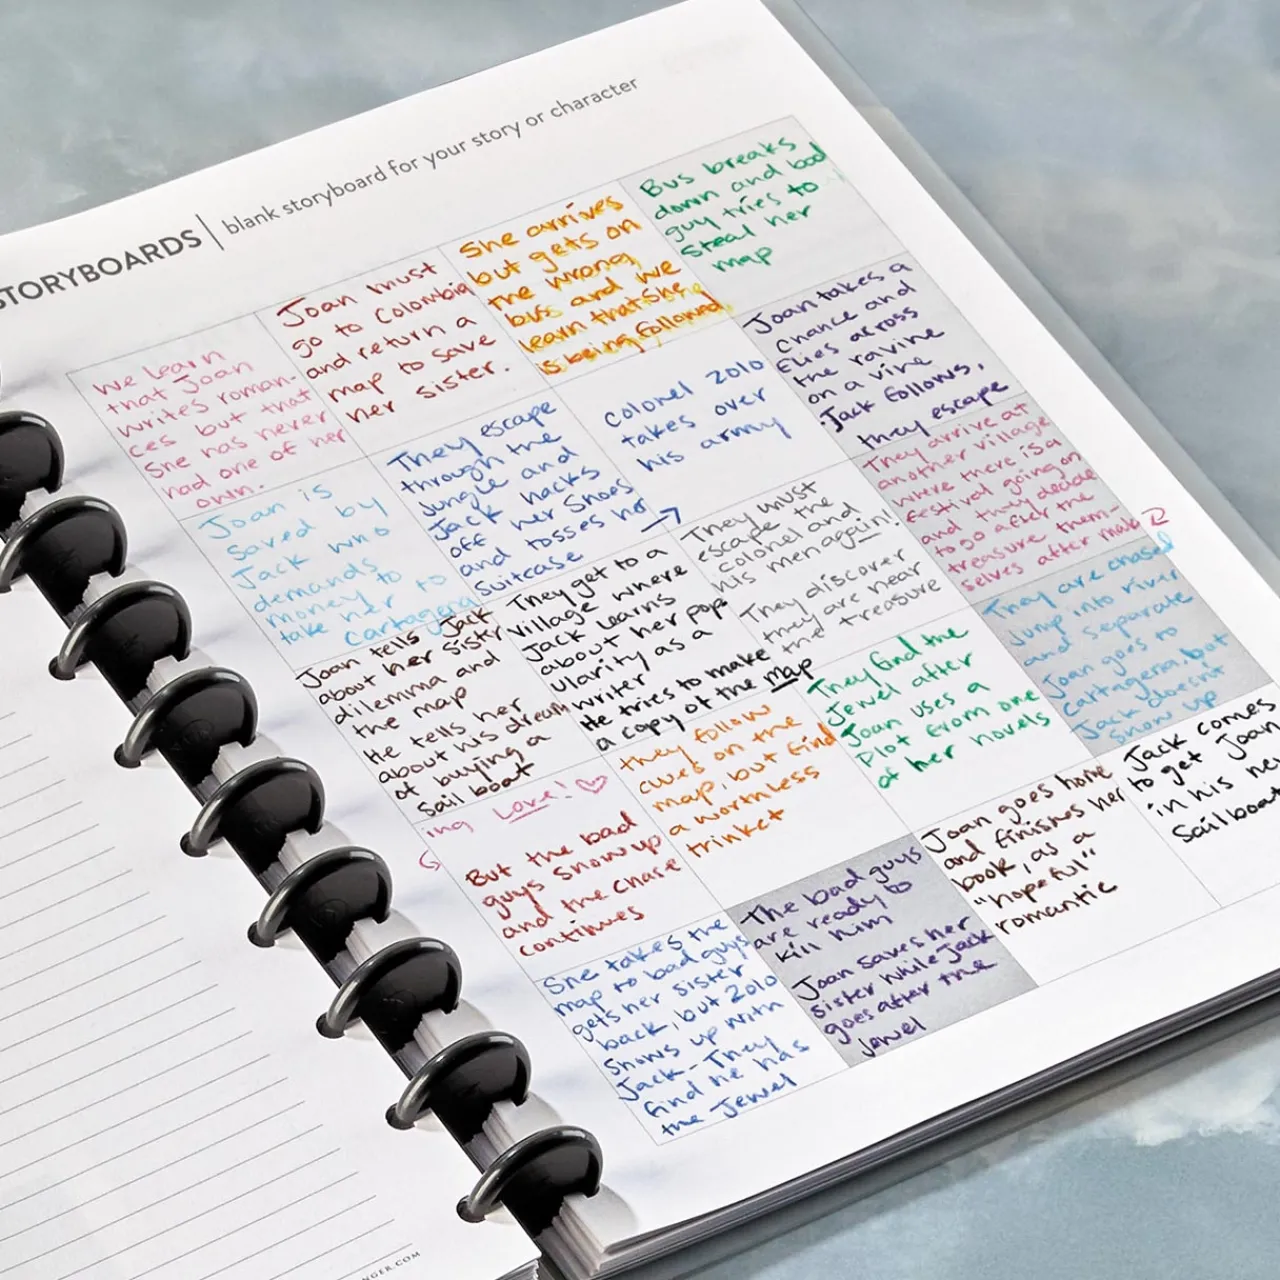 STORYBOARDS | blank storyboard for your story or character
We learn
that Joan
writes roman-
ces but that
She has never
had one of her
own.
Joan must
go to Colombia
and return a
map to save
her sister.
She arrives
but gets on
the wrong
bus and we
learn that She
is being followed
Bus breaks
down and bad
guy tries to
Steal her
map
Joan is
saved by
Jack who
demands
money to
take her to
Cartagena
They escape
through the
Jungle and
Jack hacks
off her Shoes
and tosses her
Suitcase
Colonel Zolo
takes over
his army
Joan takes a
Chance and
flies across
the ravine
on a vine
Jack follows,
they escape
Joan tells Jack
about her Sister
dilemma and
the map
He tells her
about his dream
of buying a
Sail boat
They get to a
Village where
Jack learns
about her pop-
ularity as a
writer
He tries to make
a copy of the map
They must
escape the
Colonel and
his men again!
They discover
they are near
the treasure
They arrive at
another village
where there is a
festival going on
and they decide
to go after the
treasure them-
selves after mak
ing Love! ♡
But the bad
guys Show up
and the Chase
continues
they follow
cues on the
map, but find
a worthless
trinket
They find the
Jewel after
Joan uses a
Plot from one
of her novels
They are chased
Jump into river
and separate
Joan goes to
Cartagena, but
Jack doesn't
Show up
She takes the
map to bad guys
gets her sister
back, but Zolo
Shows up with
Jack - They
find he has
the Jewel
The bad guys
are ready to
kill him
Joan saves her
sister while Jack
goes after the
Jewel
Joan goes home
and finishes her
book, as a
"hopeful"
romantic
Jack comes
to get Joan
in his new
Sailboat
NGER.COM